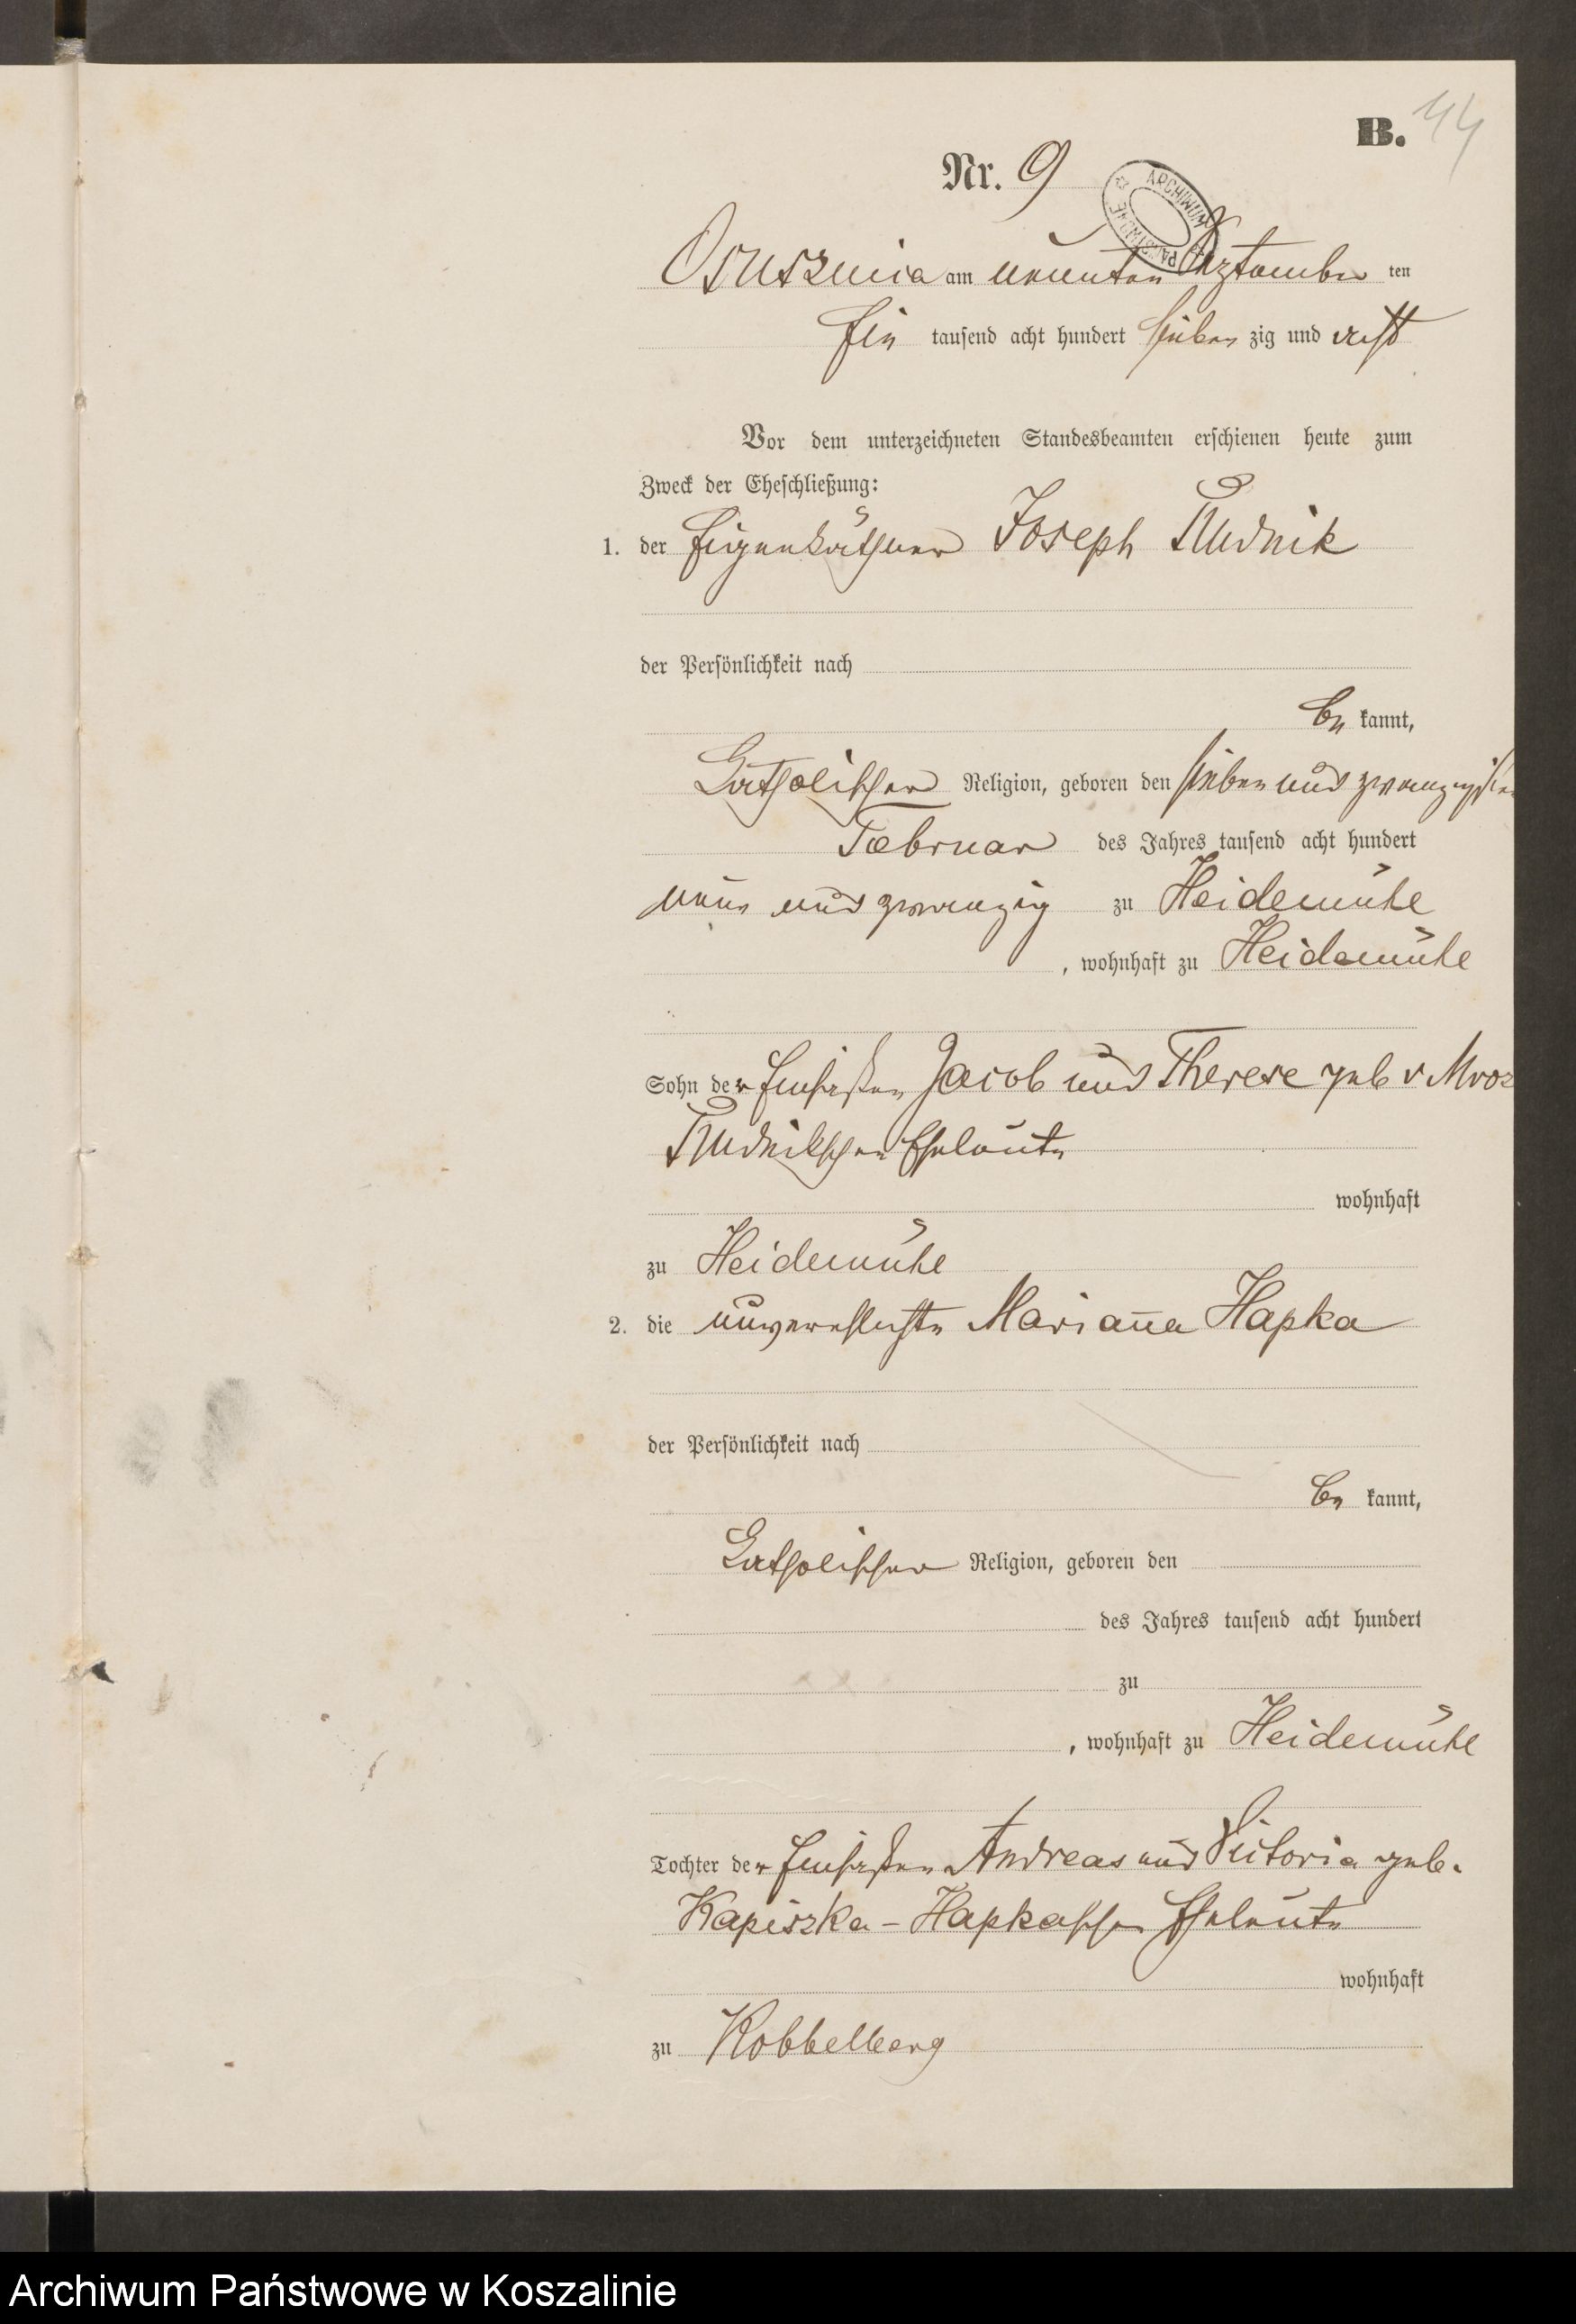 B. 44
Nr. 9
ARCHIWUM PAŃSTWOWE
Osusznica am neunten September ten
Ein tausend acht hundert sieben zig und acht
Vor dem unterzeichneten Standesbeamten erschienen heute zum
Zweck der Eheschließung:
1. der Eigenkäthner Joseph Rudnik
der Persönlichkeit nach
be kannt,
Katholischer Religion, geboren den sieben und zwanzigsten
Februar des Jahres tausend acht hundert
neun und zwanzig zu Heidemühl
, wohnhaft zu Heidemühl
Sohn der Einsaßen Jacob und Therese geb v Mroz
Rudnikschen Eheleute
wohnhaft
zu Heidemühl
2. die unverehlichte Marianna Hapka
der Persönlichkeit nach
be kannt,
Katholischer Religion, geboren den
des Jahres tausend acht hundert
zu
, wohnhaft zu Heidemühl
Tochter der Einsaßen Andreas und Victoria geb.
Kapiszka - Hapkaschen Eheleute
wohnhaft
zu Kobbelberg
Archiwum Państwowe w Koszalinie